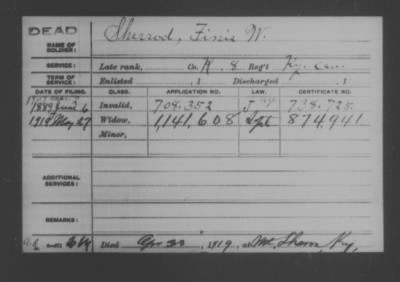 DEAD
NAME OF SOLDIER: Sherrod, Finis W.
SERVICE: Late rank, Co. K. 8 Reg't Ky. Cav.
TERM OF SERVICE: Enlisted , 1 Discharged , 1
DATE OF FILING. CLASS. APPLICATION NO. LAW. CERTIFICATE NO.
1889 June 6 Invalid, 709.352 738.725
1919 May 27 Widow, 1,141,608 Sept 874,941
Minor,
ADDITIONAL SERVICES:
REMARKS:
Died Apr , 1919, at Mt. Sharon, Ky.